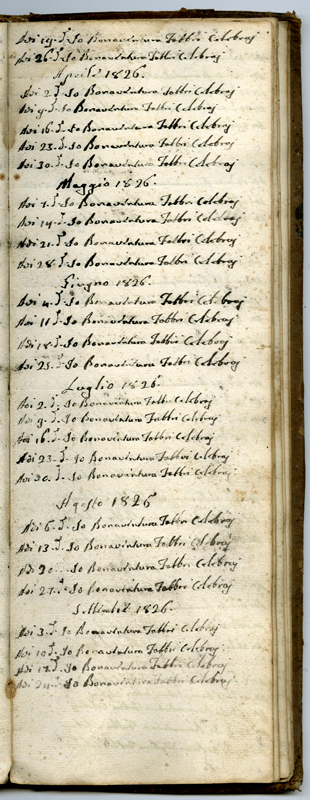 Adi 19. d.º Io Bonaventura Fabbri Celebraj
Adi 26. d.º Io Bonaventura Fabbri Celebraj
Aprile 1826.
Adi 2. d.º Io Bonaventura Fabbri Celebraj
Adi 9. d.º Io Bonaventura Fabbri Celebraj
Adi 16. d.º Io Bonaventura Fabbri Celebraj
Adi 23. d.º Io Bonaventura Fabbri Celebraj
Adi 30. d.º Io Bonaventura Fabbri Celebraj
Maggio 1826.
Adi 7. d.º Io Bonaventura Fabbri Celebraj
Adi 14. d.º Io Bonaventura Fabbri Celebraj
Adi 21. d.º Io Bonaventura Fabbri Celebraj
Adi 28. d.º Io Bonaventura Fabbri Celebraj
Giugno 1826.
Adi 4. d.º Io Bonaventura Fabbri Celebraj
Adi 11. d.º Io Bonaventura Fabbri Celebraj
Adi 18. d.º Io Bonaventura Fabbri Celebraj
Adi 25. d.º Io Bonaventura Fabbri Celebraj
Luglio 1826
Adi 2. d.º Io Bonaventura Fabbri Celebraj
Adi 9. d.º Io Bonaventura Fabbri Celebraj
Adi 16. d.º Io Bonaventura Fabbri Celebraj
Adi 23. d.º Io Bonaventura Fabbri Celebraj
Adi 30. d.º Io Bonaventura Fabbri Celebraj
Agosto 1826
Adi 6. d.º Io Bonaventura Fabbri Celebraj
Adi 13. d.º Io Bonaventura Fabbri Celebraj
Adi 20. Io Bonaventura Fabbri Celebraj
Adi 27. d.º Io Bonaventura Fabbri Celebraj
Settembre 1826.
Adi 3. d.º Io Bonaventura Fabbri Celebraj
Adi 10. d.º Io Bonaventura Fabbri Celebraj
Adi 17. d.º Io Bonaventura Fabbri Celebraj
Adi 24. d.º Io Bonaventura Fabbri Celebraj